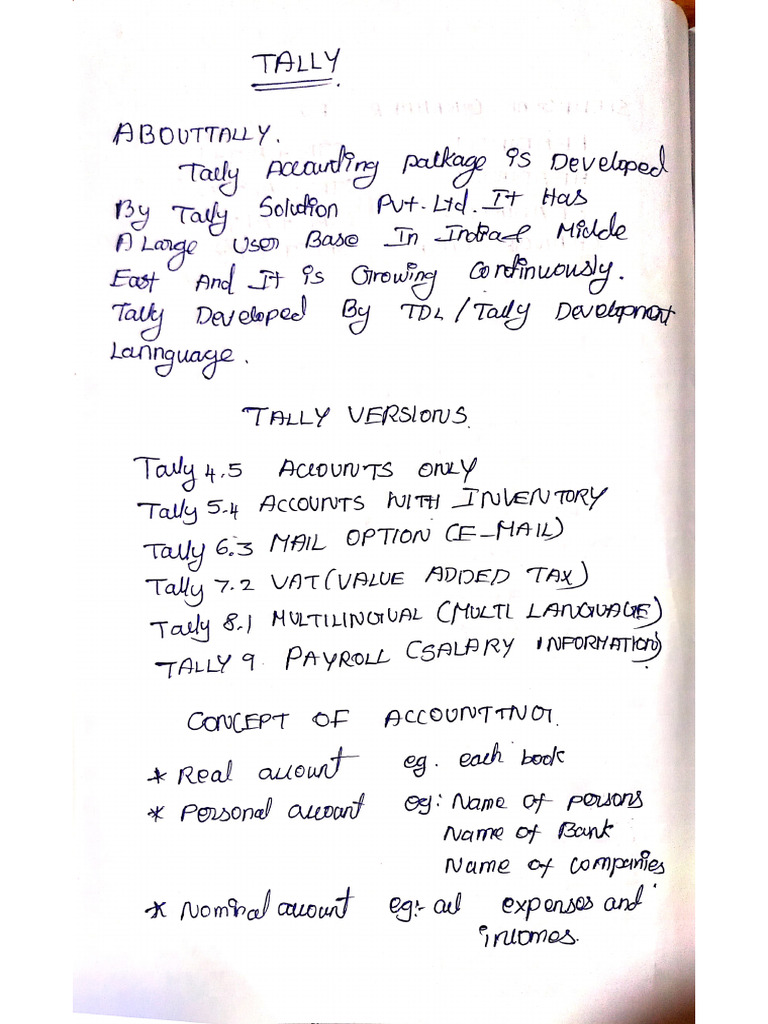 TALLY.
ABOUTTALLY.
Tally Accounting package is Developed
By Tally Solution Pvt. Ltd. It Has
A Large User Base In India & Middle
East And It is Growing Continuously.
Tally Developed By TDL / Tally Development
Lannguage.
TALLY VERSIONS.
Tally 4.5 ACCOUNTS ONLY
Tally 5.4 ACCOUNTS WITH INVENTORY
Tally 6.3 MAIL OPTION (E-MAIL)
Tally 7.2 VAT (VALUE ADDED TAX)
Tally 8.1 MULTILINGUAL (MULTI LANGUAGE)
TALLY 9. PAYROLL (SALARY INFORMATION)
CONCEPT OF ACCOUNTING.
* Real account eg. each book
* Personal account eg: Name of persons
Name of Bank
Name of companies
* Nominal account eg:- all expenses and
incomes.